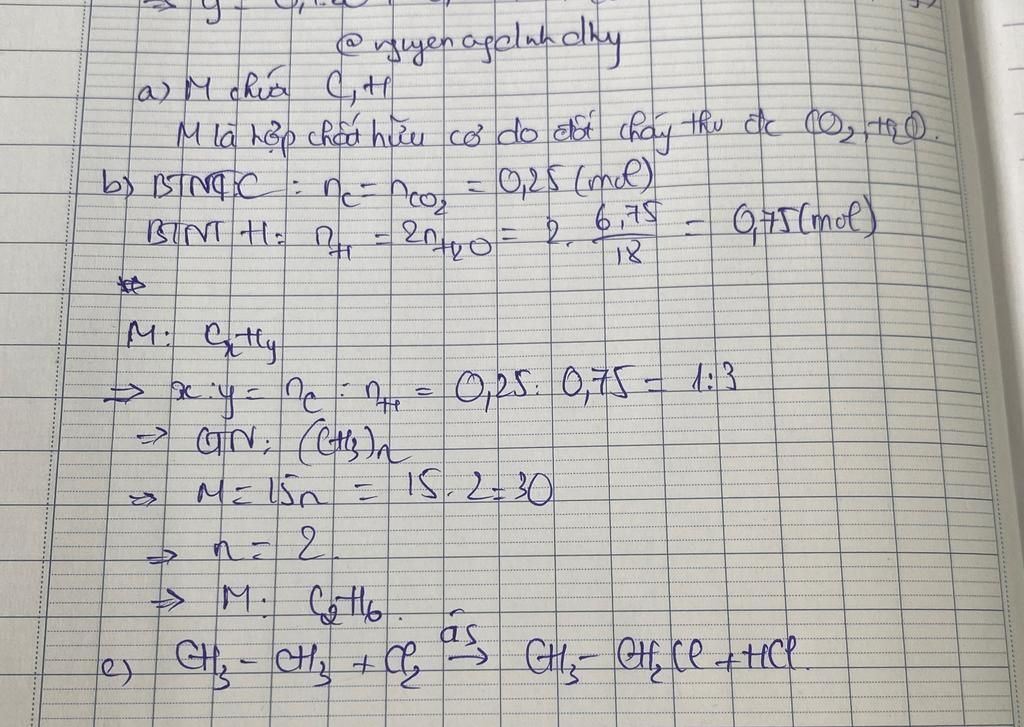 @nguyenngdinhdhy
a) M chứa C, H
M là hợp chất hữu cơ do đốt cháy thu đc CO2, H2O.
b) BTNT C: nC = nCO2 = 0,25 (mol)
BTNT H: nH = 2nH2O = 2. 6,75/18 = 0,75 (mol)
M: CxHy
=> x:y = nC : nH = 0,25: 0,75 = 1:3
=> CTN: (CH3)n
=> M = 15n = 15.2=30
=> n = 2.
=> M: C2H6.
c) CH3 - CH3 + Cl2 as→ CH3 - CH2Cl + HCl.